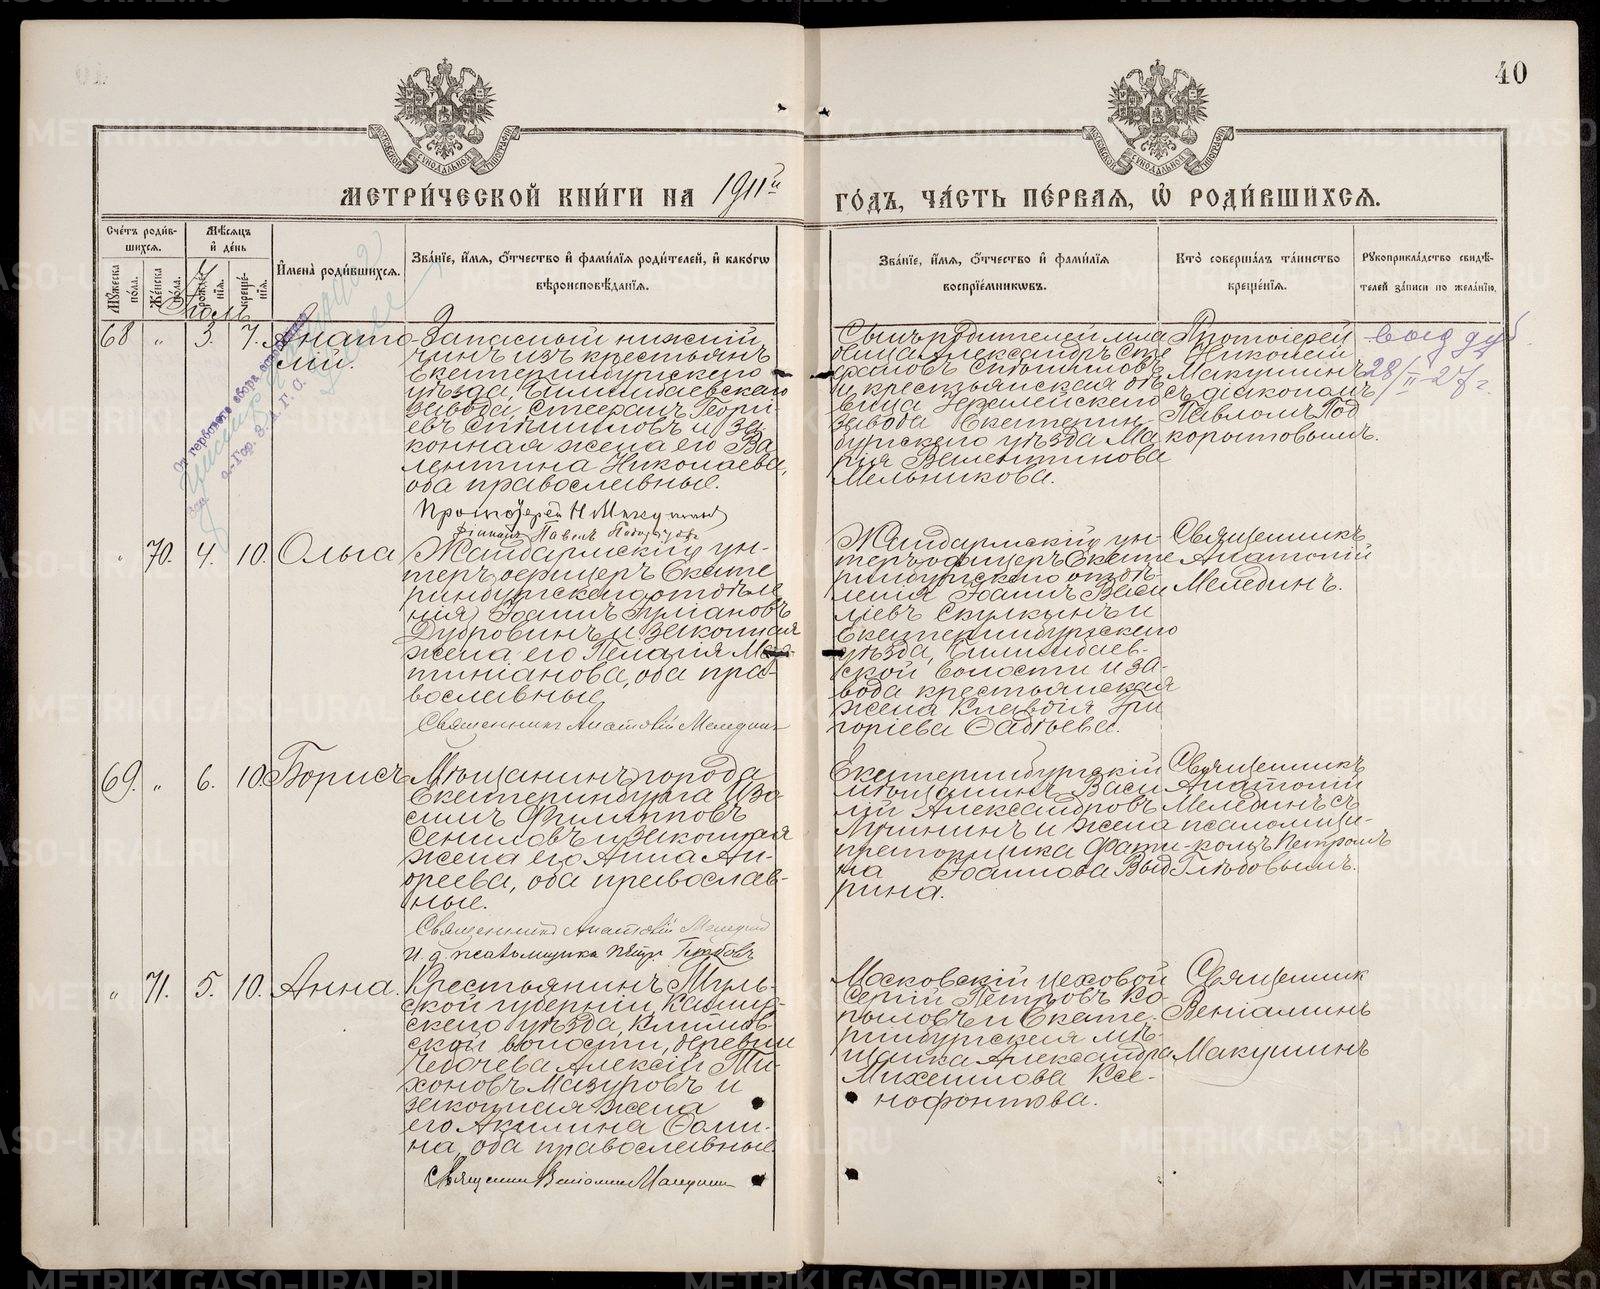 40
МЕТРИ́ЧЕСКОЙ КНИ́ГИ НА 1911й ГО́ДЪ, ЧА́СТЬ ПЕ́РВАЯ, Ѡ РОДИ́ВШИХСЯ.
Сче́тъ роди́вшихся.
Му́жеска по́ла.
Же́нска по́ла.
Мѣ́сяцъ и де́нь
рожде́нїя.
креще́нїя.
И҆мена̀ роди́вшихся.
Зва́нїе, и҆́мя, ѻ҆́тчество и҆ фами́лїя роди́телей, и҆ како́гѡ вѣроисповѣ́данїя.
Зва́нїе, и҆́мя, ѻ҆́тчество и҆ фами́лїя воспрїе́мникѡвъ.
Кто̀ соверша́лъ та́инство креще́нїя.
Рꙋкоприкла́дство свидѣ́телей за́писи по жела́нїю.
Іюль
68 " 3. 7. Анато-
лій.
Запасный нижній
чинъ изъ крестьянъ
Екатеринбургскаго
уѣзда, Билимбаевскаго
завода, Стефанъ Георгі-
евъ и за
конная жена его Ва
лентина Николаева,
оба православные.
Протоіерей Н Макушинъ
Діаконъ Павелъ
Сынъ родителей мла
Александръ Сте
фановъ
и крестьянская дѣ
вица
завода Екатерин-
бургскаго уѣзда Ма
рія Валентинова
Мельникова.
Протоіерей
Николай
Макушинъ
съ діакономъ
Павломъ Под
корытовымъ.
выд дуб.
28/II-27 г.
" 70. 4. 10. Ольга
Жандармскій ун-
теръ-офицеръ Екате
ринбургскаго отдѣле
нія Іоаннъ
Дубровинъ и законная
жена его Пелагія Мар-
тиніанова, оба пра-
вославные
Священникъ Анатолій Мелединъ
Жандармскій ун-
теръ-офицеръ Екате
ринбургскаго отдѣ-
ленія Іоаннъ Васи
ліевъ и
Екатеринбургскаго
уѣзда, Билимбаев-
ской волости и за-
вода крестьянская
жена Клавдія Гри
горіева Ѳадѣева.
Священникъ
Анатолій
Мелединъ.
69. " 6. 10. Борисъ
Мѣщанинъ города
Екатеринбурга Изо-
симъ Филипповъ
и законная
жена его Анна Ан-
дреева, оба православ-
ные.
Священникъ Анатолій Мелединъ
И. д. псаломщика Петръ Глѣбовъ
Екатеринбургскій
мѣщанинъ Васи
лій Александровъ
и жена
Іоаннова Выд
рина.
Священникъ
Анатолій
Мелединъ съ
псаломщи-
комъ Петромъ
Глѣбовымъ.
" 71. 5. 10. Анна.
Крестьянинъ Туль-
ской губерніи, Кашир-
скаго уѣзда,
ской волости, деревни
Алексій Ти-
хоновъ Мазуровъ и
законная жена
его Акилина Ѳоми-
на, оба православные.
Священникъ Веніаминъ Макушинъ
Московскій цеховой
Сергій Петровъ Ко-
пыловъ и Екате-
ринбургская мѣ-
щанка Александра
Михаилова Ксе-
нофонтова.
Священник
Веніаминъ
Макушинъ
METRIKI.GASO-URAL.RU